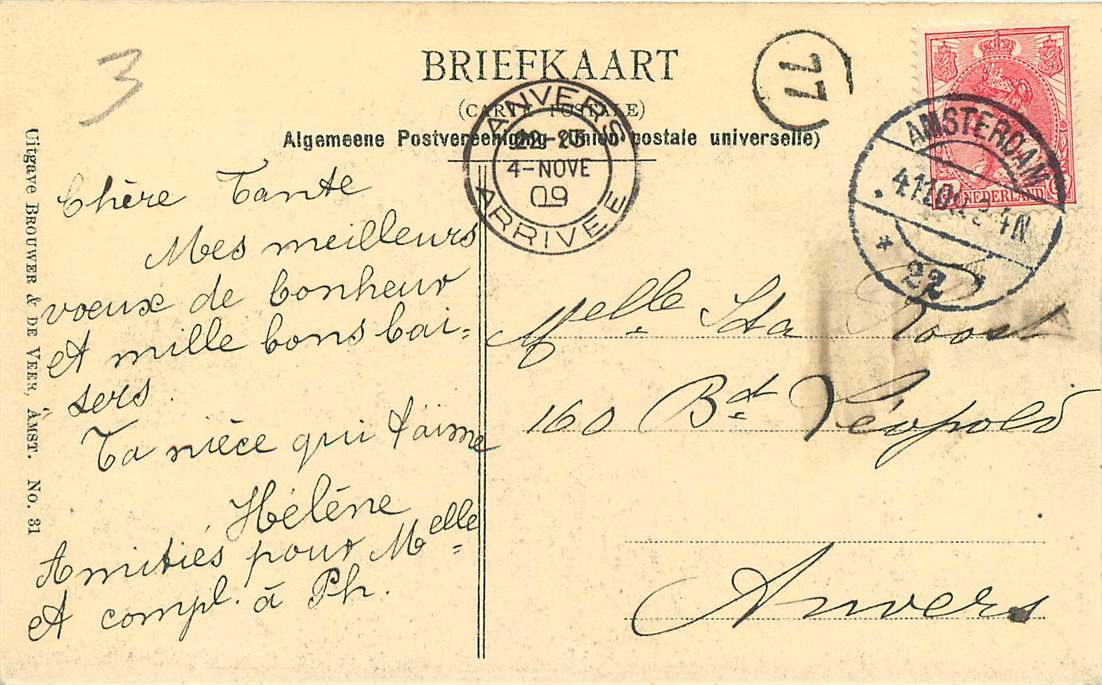 3
BRIEFKAART
(CARTE POSTALE)
Algemeene Postvereeniging (Union postale universelle)
77
ANVERS
22-23
4-NOVE
09
ARRIVEE
AMSTERDAM
4.11.09
4N
22
NEDERLAND
Chère Tante
Mes meilleurs
voeux de bonheur
et mille bons bai-
sers.
Ta nièce qui t'aime
Hélène
Amitiés pour Melle
et compl. à Ph.
Melle Ida Roost
160 Bd Léopold
Anvers
Uitgave BROUWER & DE VEER, ÂMST. No. 31